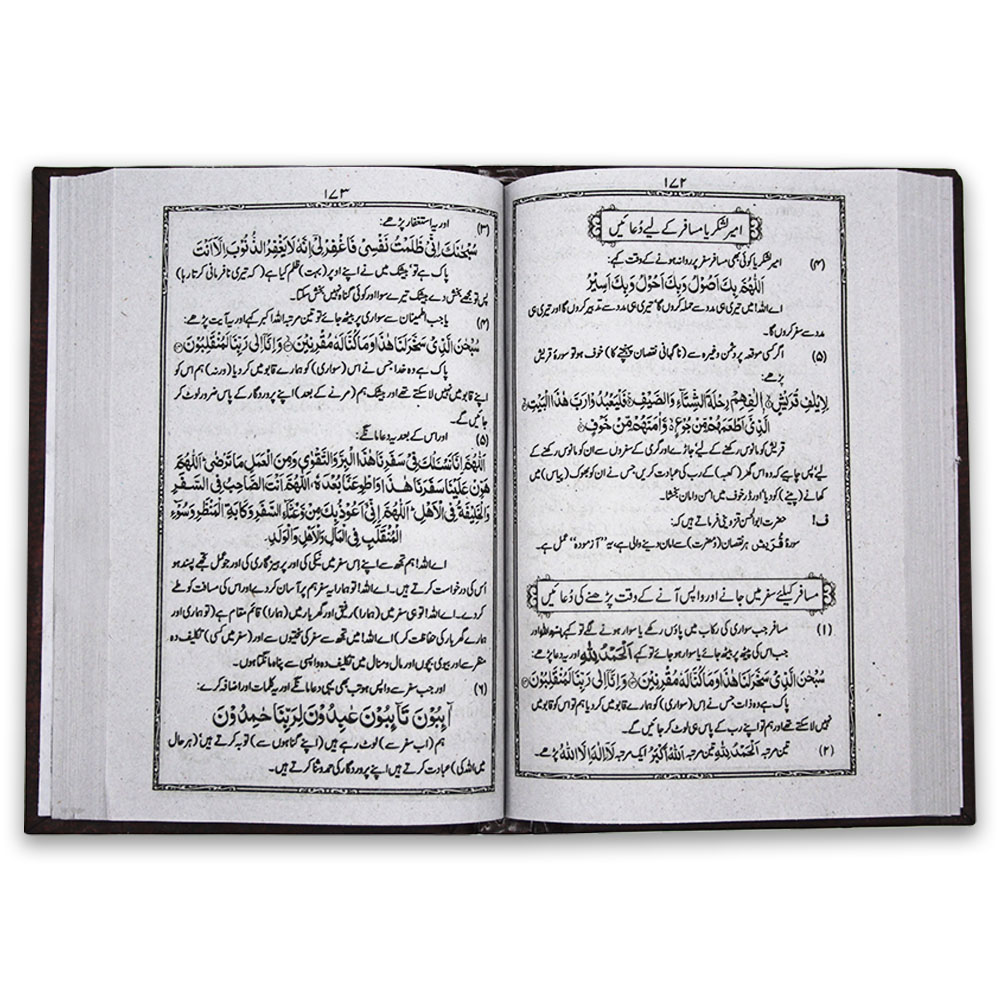 ۱۷۲
امیر لشکر یا مسافر کے لیے دُعائیں
(۴) امیر لشکر یا کوئی بھی مسافر سفر پر روانہ ہونے کے وقت کہے:
اَللّٰهُمَّ بِكَ اَصُوْلُ وَبِكَ اَحُوْلُ وَبِكَ اَسِيْرُ
اے اللہ! میں تیری ہی مدد سے حملہ کروں گا، تیری ہی مدد سے تدبیر کروں گا اور تیری ہی
مدد سے سفر کروں گا۔
(۵) اگر کسی موقعہ پر دشمن وغیرہ سے (ناگہانی نقصان پہنچنے کا) خوف ہو تو سورۃ قریش
پڑھے:
لِاِيْلٰفِ قُرَيْشٍ اٖلٰفِهِمْ رِحْلَةَ الشِّتَآءِ وَالصَّيْفِ فَلْيَعْبُدُوْا رَبَّ هٰذَا الْبَيْتِ
الَّذِىْ اَطْعَمَهُمْ مِّنْ جُوْعٍ وَّاٰمَنَهُمْ مِّنْ خَوْفٍ
قریش کو مانوس رکھنے کے لیے جاڑے اور گرمی کے سفروں سے ان کو مانوس رکھنے کے
لیے پس چاہیے کہ وہ اس گھر (کعبہ) کے رب کی عبادت کریں جس نے ان کو بھوک (پیاس) میں
کھانے (پینے) کو دیا اور ڈر خوف میں امن و امان بخشا۔
ف! حضرت ابوالحسن قزوینی فرماتے ہیں کہ:
سورۃ قُرَيْش ہر نقصان (ومضرت) سے امان دینے والی ہے، یہ ”آزمودہ“ عمل ہے۔
مسافر کیلئے سفر میں جانے اور واپس آنے کے وقت پڑھنے کی دُعائیں
(۱) مسافر جب سواری کی رکاب میں پاؤں رکھے یا سوار ہونے لگے تو کہے بسم اللہ اور
جب اس کی پیٹھ پر بیٹھ جائے یا سوار ہو جائے تو کہے اَلْحَمْدُ لِلّٰهِ اور یہ دعا پڑھے:
سُبْحٰنَ الَّذِىْ سَخَّرَ لَنَا هٰذَا وَمَا كُنَّا لَهٗ مُقْرِنِيْنَ وَاِنَّا اِلٰى رَبِّنَا لَمُنْقَلِبُوْنَ
پاک ہے وہ ذات جس نے اِس (سواری) کو ہمارے قابو میں کر دیا ہم تو اس کو قابو میں
نہیں لا سکتے تھے اور ہم تو اپنے رب کے پاس ہی لوٹ کر جائیں گے۔
(۲) تین مرتبہ اَلْحَمْدُ لِلّٰهِ تین مرتبہ اَللّٰهُ اَكْبَرُ ایک مرتبہ لَآ اِلٰهَ اِلَّا اللّٰهُ پڑھے۔
۱۷۳
(۳) اور یہ استغفار پڑھے:
سُبْحٰنَكَ اِنِّىْ ظَلَمْتُ نَفْسِىْ فَاغْفِرْ لِىْ اِنَّهٗ لَا يَغْفِرُ الذُّنُوْبَ اِلَّا اَنْتَ
پاک ہے تو، بیشک میں نے اپنے اوپر (بہت) ظلم کیا ہے (کہ تیری نافرمانی کرتا رہا)
پس تو مجھے بخش دے بیشک تیرے سوا اور کوئی گناہ نہیں بخش سکتا۔
(۴) یا جب اطمینان سے سواری پر بیٹھ جائے تو تین مرتبہ اللہ اکبر کہے اور یہ آیت پڑھے:
سُبْحٰنَ الَّذِىْ سَخَّرَ لَنَا هٰذَا وَمَا كُنَّا لَهٗ مُقْرِنِيْنَ وَاِنَّا اِلٰى رَبِّنَا لَمُنْقَلِبُوْنَ
پاک ہے وہ خدا جس نے اس (سواری) کو ہمارے قابو میں کر دیا (ورنہ) ہم اس کو
اپنے قابو میں نہیں لا سکتے تھے اور بیشک ہم (مرنے کے بعد) اپنے پروردگار کے پاس ضرور لوٹ کر
جائیں گے۔
(۵) اور اس کے بعد یہ دعا مانگے:
اَللّٰهُمَّ اِنَّا نَسْئَلُكَ فِىْ سَفَرِنَا هٰذَا الْبِرَّ وَالتَّقْوٰى وَمِنَ الْعَمَلِ مَا تَرْضٰى اَللّٰهُمَّ
هَوِّنْ عَلَيْنَا سَفَرَنَا هٰذَا وَاطْوِعَنَّا بُعْدَهٗ، اَللّٰهُمَّ اَنْتَ الصَّاحِبُ فِى السَّفَرِ
وَالْخَلِيْفَةُ فِى الْاَهْلِ اَللّٰهُمَّ اِنِّىْ اَعُوْذُ بِكَ مِنْ وَّعْثَآءِ السَّفَرِ وَكَاٰبَةِ الْمَنْظَرِ وَسُوْٓءِ
الْمُنْقَلَبِ فِى الْمَالِ وَالْاَهْلِ وَالْوَلَدِ۔
اے اللہ! ہم تجھ سے اپنے اِس سفر میں نیکی کی اور پرہیزگاری کی اور جو عمل تجھے پسند ہو
اُس کی درخواست کرتے ہیں۔ اے اللہ! تو ہمارا یہ سفر ہم پر آسان کر دے اور اس کی مسافت کو طے
کر دے۔ اے اللہ! تو ہی سفر میں (ہمارا) رفیق اور گھر بار میں (ہمارا) قائم مقام ہے (تو ہماری اور
ہمارے گھر بار کی حفاظت کر) اے اللہ! میں تجھ سے سفر کی سختیوں سے اور (سفر میں کسی) تکلیف دہ
منظر سے اور بیوی بچوں اور مال و منال میں تکلیف دہ واپسی سے پناہ مانگتا ہوں۔
(۶) اور جب سفر سے واپس ہو جب بھی یہی دعا مانگے اور یہ کلمات اور اضافہ کرے:
اٰيِبُوْنَ تَآئِبُوْنَ عٰبِدُوْنَ لِرَبِّنَا حٰمِدُوْنَ
ہم (اب سفر سے) لوٹ رہے ہیں (اپنے گناہوں سے) توبہ کرتے ہیں، (ہر حال
میں اللہ کی) عبادت کرتے ہیں اپنے پروردگار کی حمد و ثنا کرتے ہیں۔